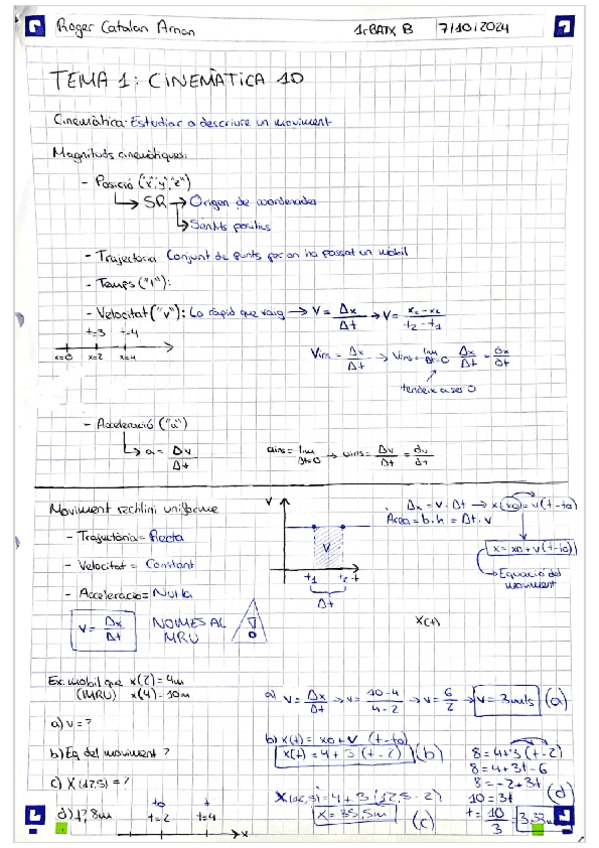 Roger Catalan Arnan 1rBATX B 7/10/2024
TEMA 1: CINEMÀTICA 1D
Cinemàtica: Estudiar a descriure un moviment
Magnituds cinemàtiques:
- Posició ("x","y","z")
↳ SR → Origen de coordenades
↳ Sentits positius
- Trajectoria: Conjunt de punts per on ha passat un mòbil
- Temps ("t"):
- Velocitat ("v"): Lo ràpid que vaig → V = Δx/Δt → V = x₂-x₁/t₂-t₁
t=3 t=4
x=0 x=2 x=4
Vins = Δx/Δt → Vins = lim Δt→0 Δx/Δt = dx/dt
tendeix a ser 0
- Acceleració ("a")
↳ a = Δv/Δt
ains = lim Δt→0 → ains = Δv/Δt = dv/dt
Moviment rectilini uniforme
- Trajectòria = Recta
- Velocitat = Constant
- Acceleracio = Nul·la
V = Δx/Δt NOMES AL
MRU
V
V
t₁ t₂ t
Δt
Δx = v · Δt → x(x0) = v(t-t0)
Àrea = b·h = Δt · v
x = x0 + v(t-t0)
Equació del
moviment
X(t)
Ex: mobil que x(2) = 4m
(MRU) x(4) = 10m
a) v = ?
b) Eq del moviment ?
c) X(12,5) = ?
d) 1?, 8m
t0 t
t=2 t=4
x
a) V = Δx/Δt → v = 10-4/4-2 → v = 6/2 → v = 3m/s (a)
b) x(t) = x0 + v (t-t0)
x(t) = 4 + 3 (t-2) (b)
X(12,5) = 4 + 3 (12,5 - 2)
X = 35,5m (c)
8 = 4+3(t-2)
8 = 4+3t-6
8 = -2+3t
10 = 3t (d)
t = 10/3 = 3,33